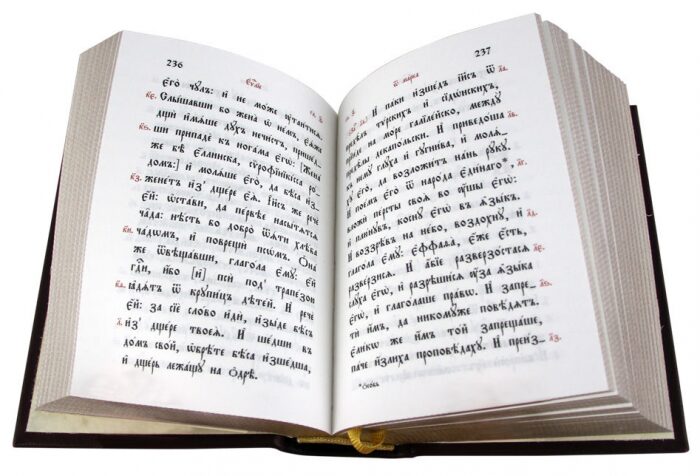 236
Єѵⷢ҇лїе
єгѡ̀ чꙋ́ть: и҆ не мо́же ᲂу҆таи́тисѧ.
Слы́шавши бо жена̀ ѡ҆ не́мъ, є҆ѧ́же
дщѝ и҆мѧ́ше дꙋ́хъ нечи́стъ, прише́д-
ши припадѐ къ нога́ма є҆гѡ̀: [Жена́
же бѣ̀ є҆́ллинска, сѷрофїні́кїсса ро́-
домъ:] и҆ молѧ́ше є҆го̀, да бѣ́са и҆з-
жене́тъ и҆з̾ дще́ре є҆ѧ̀. І҆и҃съ же речѐ
є҆́й: ѡ҆ста́ви, да пе́рвѣе насы́тѧтсѧ
ча̑да: нѣ́сть бо добро̀ ѿѧ́ти хлѣ́ба
ча́дѡмъ, и҆ поврещѝ псѡ́мъ. Ѻ҆на́
же ѿвѣща́вши, глаго́ла є҆мꙋ̀: є҆́й
гдⷭ҇и, и҆́бо [и҆] псѝ под̾ трапе́зою
ꙗ҆дѧ́тъ ѿ крꙋпи́цъ дѣте́й. И҆ речѐ
є҆́й: за сїѐ сло́во и҆дѝ, и҆зы́де бѣ́съ
и҆з̾ дще́ре твоеѧ̀. И҆ ше́дши въ
до́мъ сво́й, ѡ҆брѣ́те бѣ́са и҆зше́дша,
и҆ дще́рь лежа́щꙋ на ѻ҆дрѣ̀.
237
ѿ ма́рка
И҆ па́ки и҆зше́дъ і҆и҃съ ѿ
предѣ̑лъ тѵ́рскихъ и҆ сїдѡ́нскихъ,
прїи́де на мо́ре галїле́йско, междꙋ̀
предѣ̑лы декапѡ́льски. И҆ приведо́ша
къ немꙋ̀ глꙋ́ха и҆ гꙋгни́ва, и҆ молѧ́-
хꙋ є҆го̀, да возложи́тъ на́нь рꙋ́кꙋ.
И҆ пое́мъ є҆го̀ ѿ наро́да є҆ди́наго*,
вложѝ пе́рсты своѧ̑ во ᲂу҆́шы є҆гѡ̀:
и҆ плю́нꙋвъ, коснꙋ́ є҆гѡ̀ въ ѧ҆зы́къ.
И҆ воззрѣ́въ на не́бо, воздохнꙋ̀, и҆
глаго́ла є҆мꙋ̀: є҆ффаѳа̀, є҆́же є҆́сть,
разве́рзисѧ. И҆ а҆́бїе разверзо́стасѧ
слꙋ̑ха є҆гѡ̀, и҆ разрѣши́сѧ ᲂу҆́за ѧ҆зы́ка
є҆гѡ̀, и҆ глаго́лаше пра́вѡ. И҆ запре-
тѝ и҆̀мъ, да никомꙋ́же повѣ́дѧтъ.
Є҆ли́кѡ же и҆̀мъ то́й запреща́ше,
па́че и҆́злиха проповѣ́дахꙋ. И҆ преи́з-
*ѻ҆со́бь